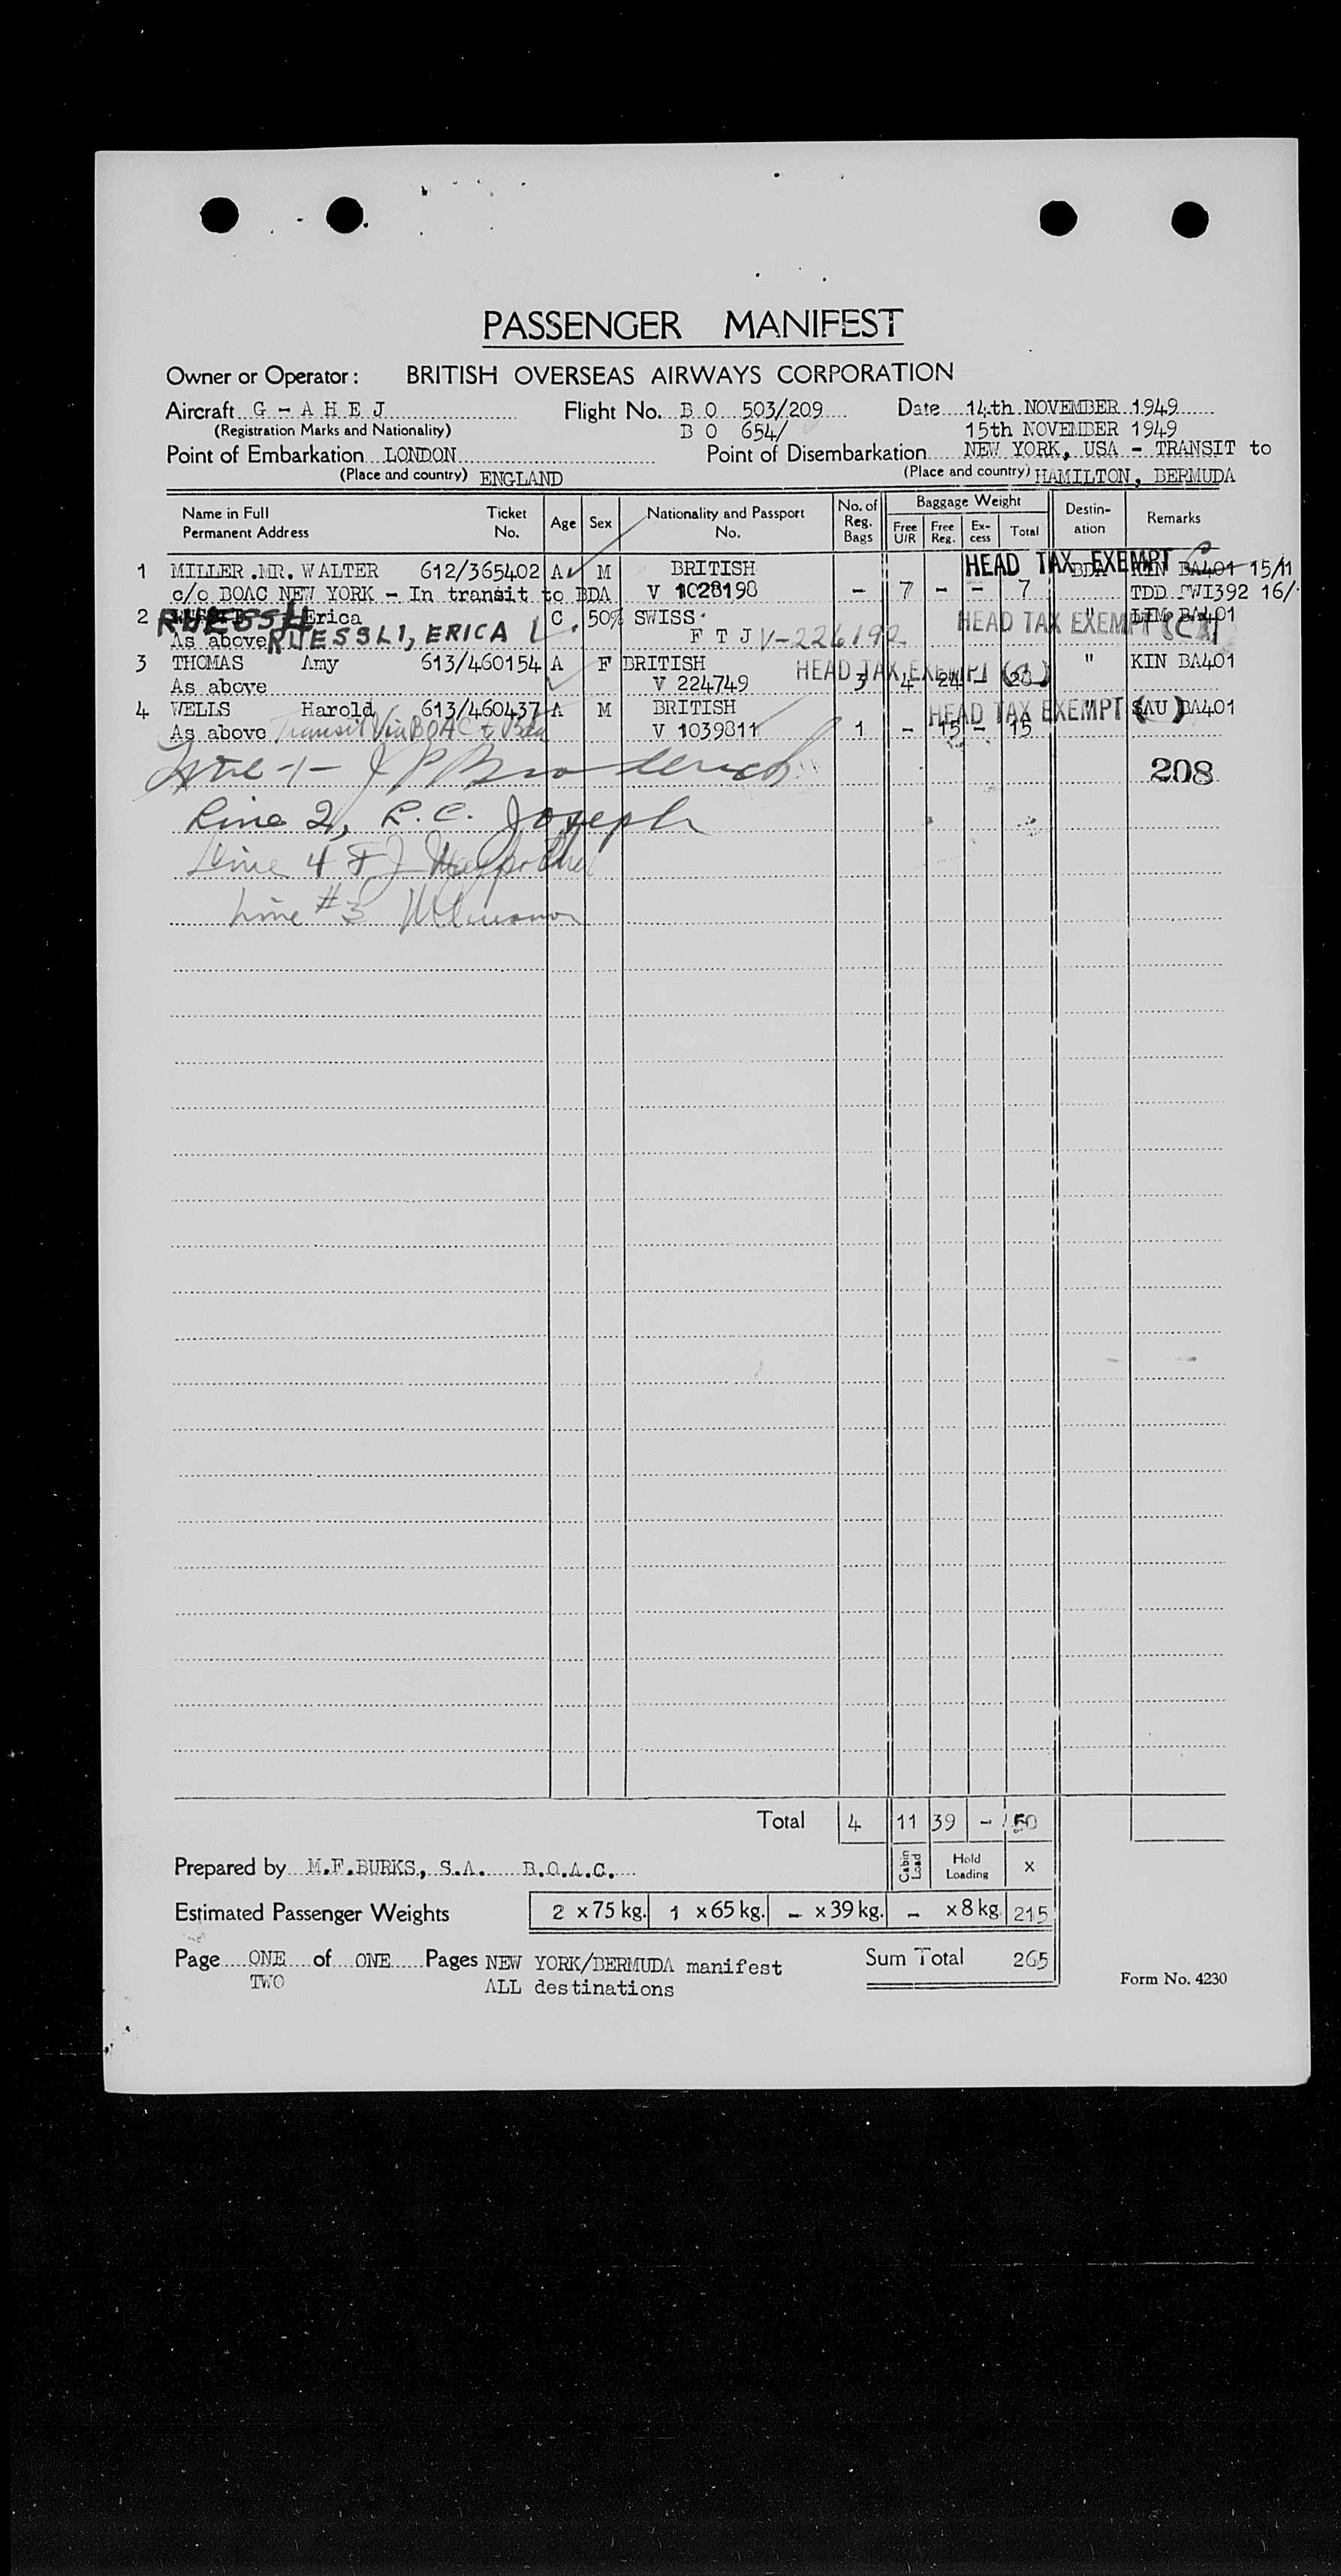 PASSENGER MANIFEST
Owner or Operator: BRITISH OVERSEAS AIRWAYS CORPORATION
Aircraft G - A H E J Flight No. B O 503/209 Date 14th NOVEMBER 1949
(Registration Marks and Nationality) B O 654/ 15th NOVEMBER 1949
Point of Embarkation LONDON Point of Disembarkation NEW YORK, USA - TRANSIT to
(Place and country) ENGLAND (Place and country) HAMILTON, BERMUDA
Name in Full Permanent Address Ticket No. Age Sex Nationality and Passport No. No. of Reg. Bags Baggage Weight Free U/R Free Reg. Ex-cess Total Destin-ation Remarks
HEAD TAX EXEMPT
1 MILLER.MR. WALTER 612/365402 A M BRITISH BDA KIN BA401 15/11
c/o BOAC NEW YORK - In transit to BDA V 1028198 - 7 - - 7 TDD 392 16/
2 Erica C 50% SWISS HEAD TAX EXEMPT " LIM BA401
As above RUESSLI, ERICA F T J V-226192
3 THOMAS Amy 613/460154 A F BRITISH HEAD TAX EXEMPT " KIN BA401
As above V 224749 3 4 24 - 28
4 WELLS Harold 613/460437 A M BRITISH HEAD TAX EXEMPT " BA401
As above Transit Via BOAC to Bda V 1039811 1 - 15 - 15
Line 1 - J P Broderick 208
Line 2, R.C. Joseph
Line 4
Line #3
Total 4 11 39 - 50
Prepared by M.F.BURKS, S.A. B.O.A.C. Cabin Load Hold Loading X
Estimated Passenger Weights 2 x 75 kg. 1 x 65 kg. - x 39 kg. - x 8 kg. 215
Page ONE of ONE Pages NEW YORK/BERMUDA manifest Sum Total 265
TWO ALL destinations Form No. 4230